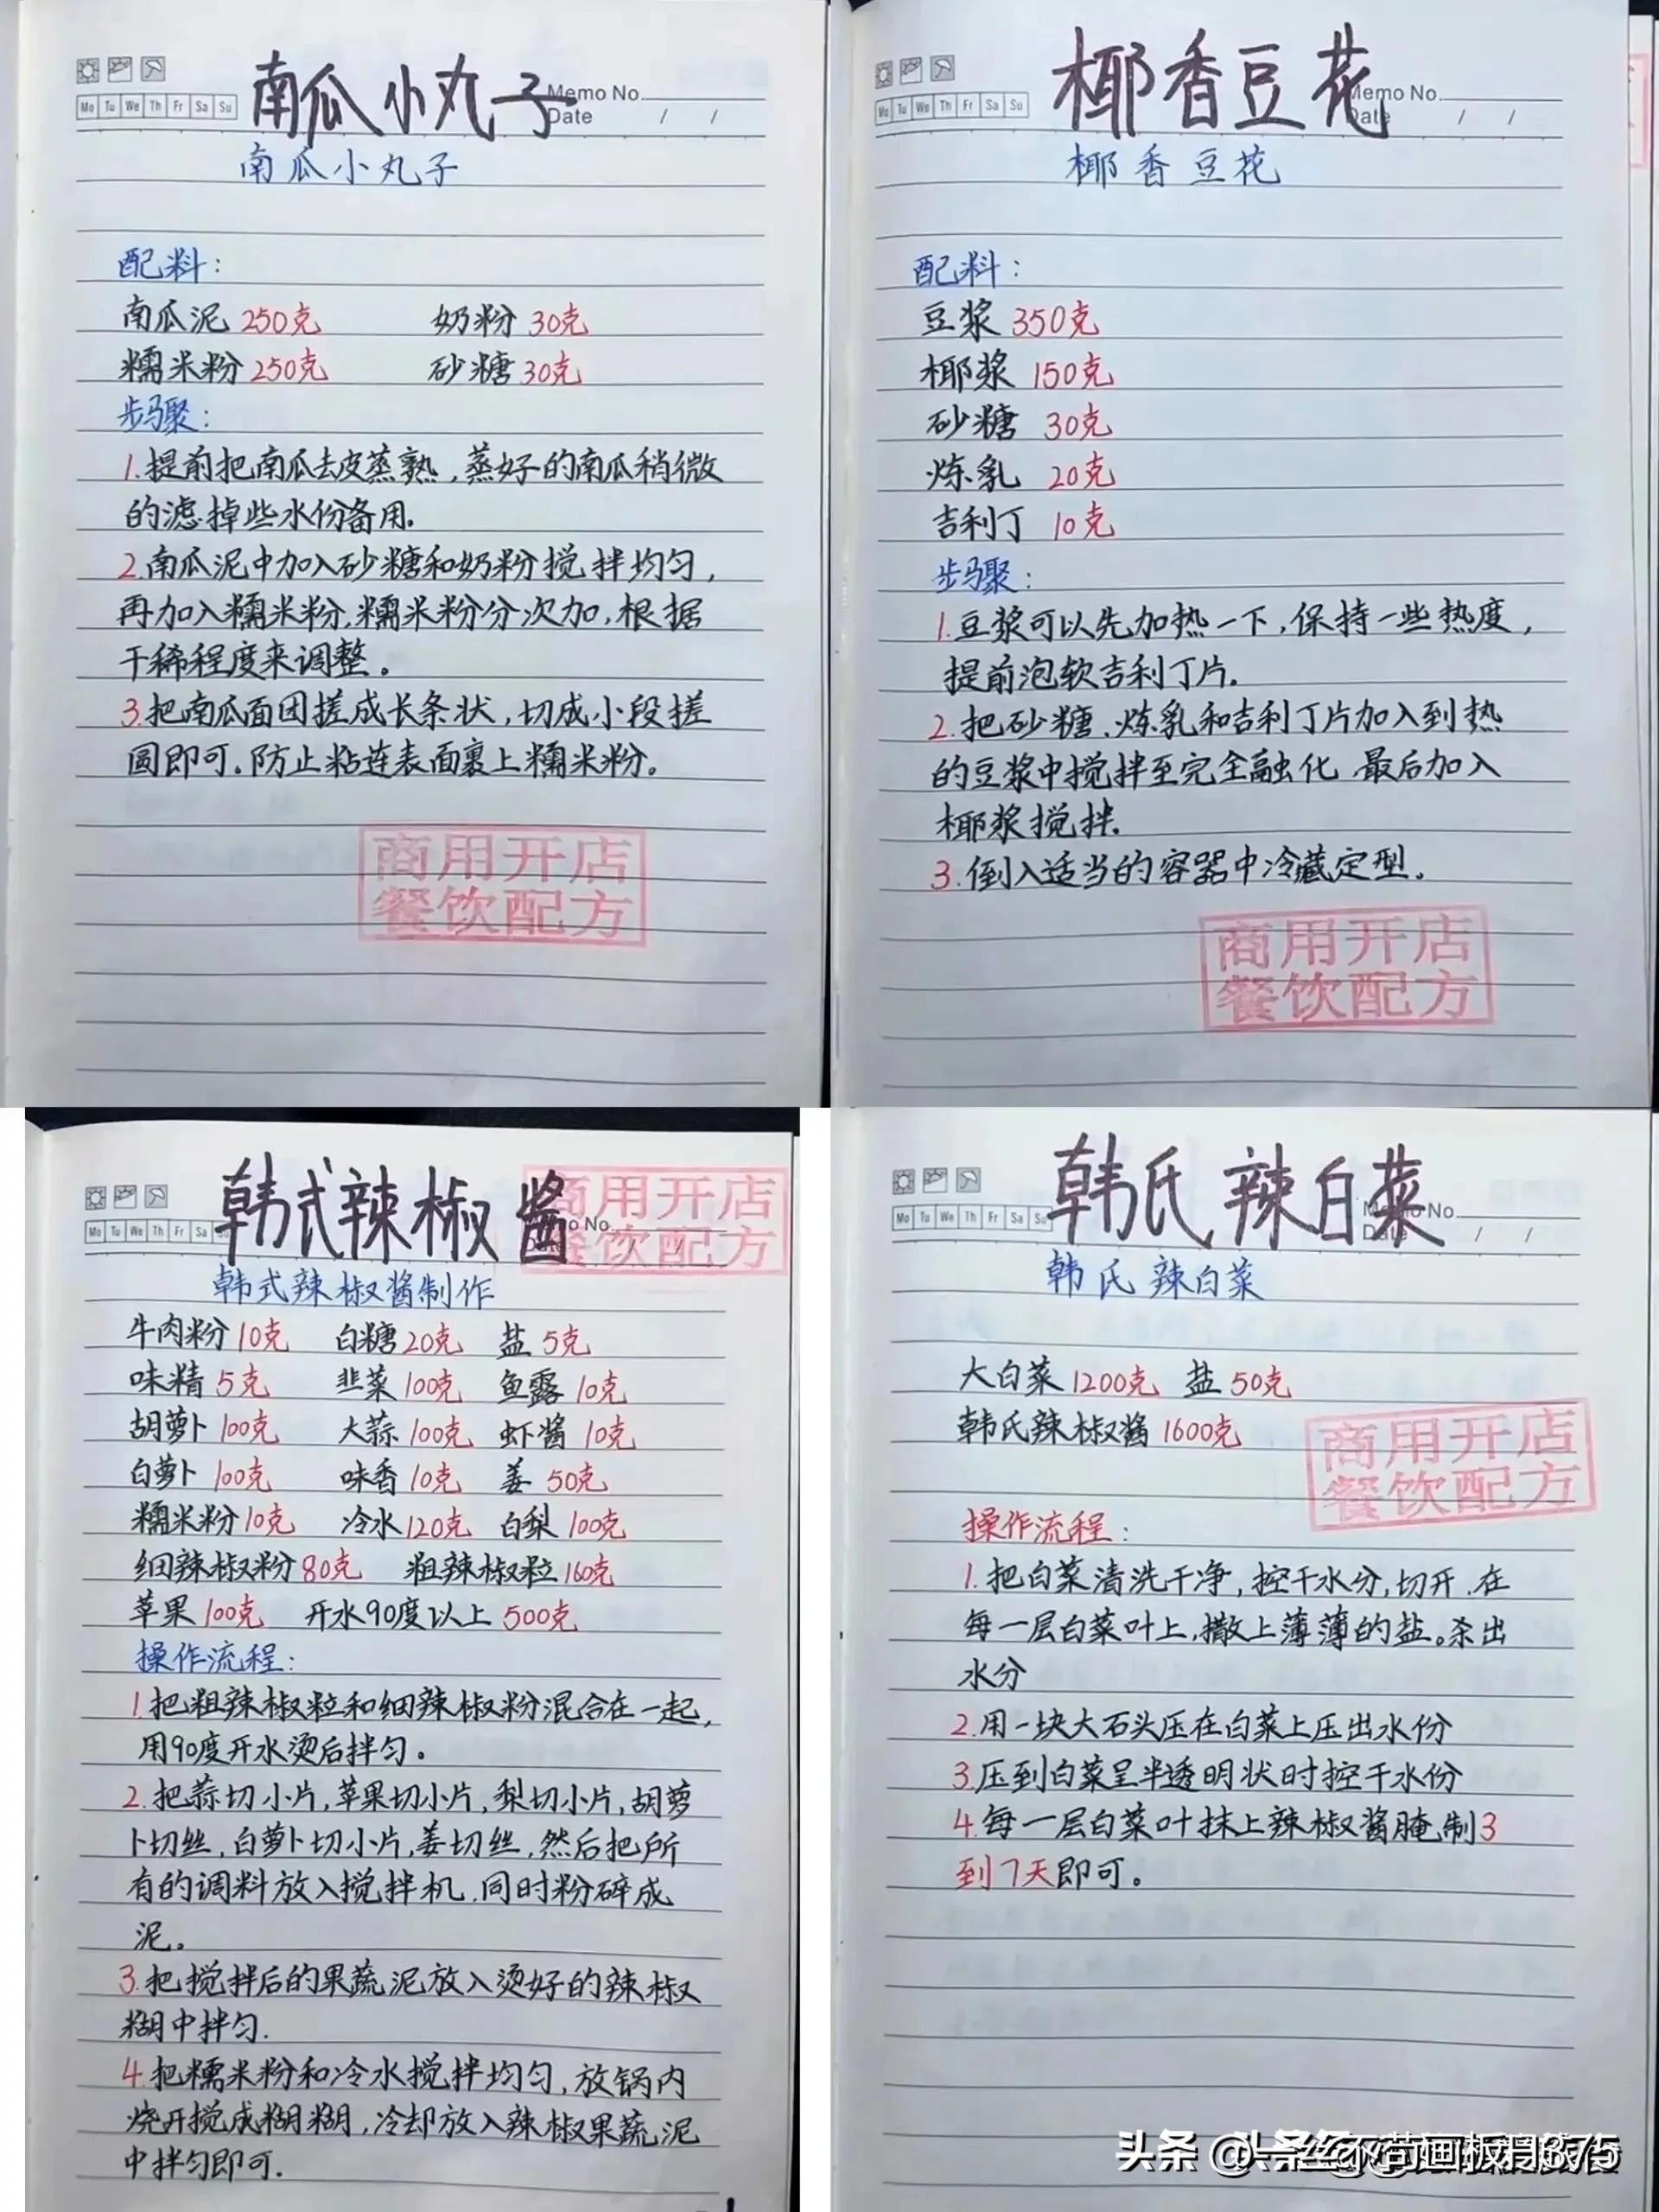 南瓜小丸子
Memo No.
Mo Tu We Th Fr Sa Su
Date / /
南瓜小丸子
配料:
南瓜泥 250克 奶粉 30克
糯米粉 250克 砂糖 30克
步骤:
1.提前把南瓜去皮蒸熟,蒸好的南瓜稍微
的滤掉些水份备用.
2.南瓜泥中加入砂糖和奶粉搅拌均匀,
再加入糯米粉,糯米粉分次加,根据
干稀程度来调整。
3.把南瓜面团搓成长条状,切成小段搓
圆即可。防止粘连表面裹上糯米粉。
商用开店
餐饮配方
椰香豆花
Memo No.
Mo Tu We Th Fr Sa Su
Date / /
椰香豆花
配料:
豆浆 350克
椰浆 150克
砂糖 30克
炼乳 20克
吉利丁 10克
步骤:
1.豆浆可以先加热一下,保持一些热度,
提前泡软吉利丁片.
2.把砂糖、炼乳和吉利丁片加入到热
的豆浆中搅拌至完全融化.最后加入
椰浆搅拌.
3.倒入适当的容器中冷藏定型。
商用开店
餐饮配方
韩式辣椒酱
商用开店
餐饮配方
Mo Tu We Th Fr Sa
No.
韩式辣椒酱制作
牛肉粉 10克 白糖 20克 盐 5克
味精 5克 韭菜 100克 鱼露 10克
胡萝卜 100克 大蒜 100克 虾酱 10克
白萝卜 100克 味香 10克 姜 50克
糯米粉 10克 冷水 120克 白梨 100克
细辣椒粉 80克 粗辣椒粒 160克
苹果 100克 开水90度以上 500克
操作流程:
1.把粗辣椒粒和细辣椒粉混合在一起,
用90度开水烫后拌匀。
2.把蒜切小片,苹果切小片,梨切小片,胡萝
卜切丝,白萝卜切小片,姜切丝,然后把所
有的调料放入搅拌机.同时粉碎成
泥。
3.把搅拌后的果蔬泥放入烫好的辣椒
糊中拌匀.
4.把糯米粉和冷水搅拌均匀,放锅内
烧开搅成糊糊,冷却放入辣椒果蔬泥
中拌匀即可.
韩氏辣白菜
Memo No.
Mo Tu We Th Fr Sa Su
Date / /
韩氏辣白菜
大白菜 1200克 盐 50克
韩氏辣椒酱 1600克
商用开店
餐饮配方
操作流程:
1.把白菜清洗干净,控干水分,切开.在
每一层白菜叶上,撒上薄薄的盐。杀出
水分
2.用一块大石头压在白菜上压出水份
3.压到白菜呈半透明状时控干水份
4.每一层白菜叶抹上辣椒酱腌制3
到7天即可。
头条 @